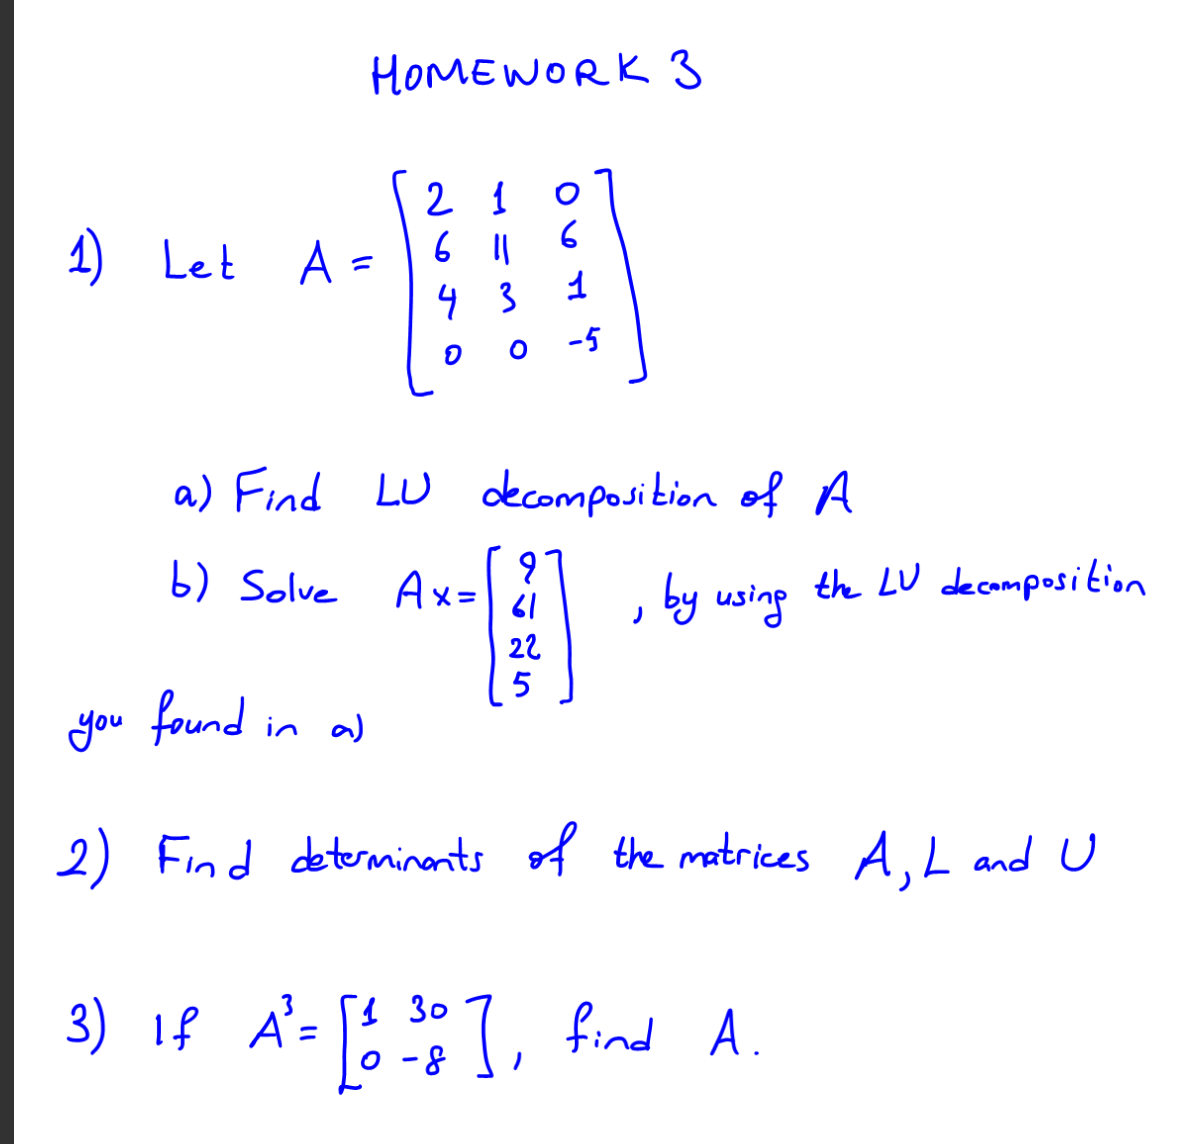 HOMEWORK 3
1) Let A = [2 1 0
6 11 6
4 3 1
0 0 -5]
a) Find LU decomposition of A
b) Solve Ax = [9
61
22
5] , by using the LU decomposition
you found in a)
2) Find determinants of the matrices A, L and U
3) If A³ = [1 30
0 -8], find A.